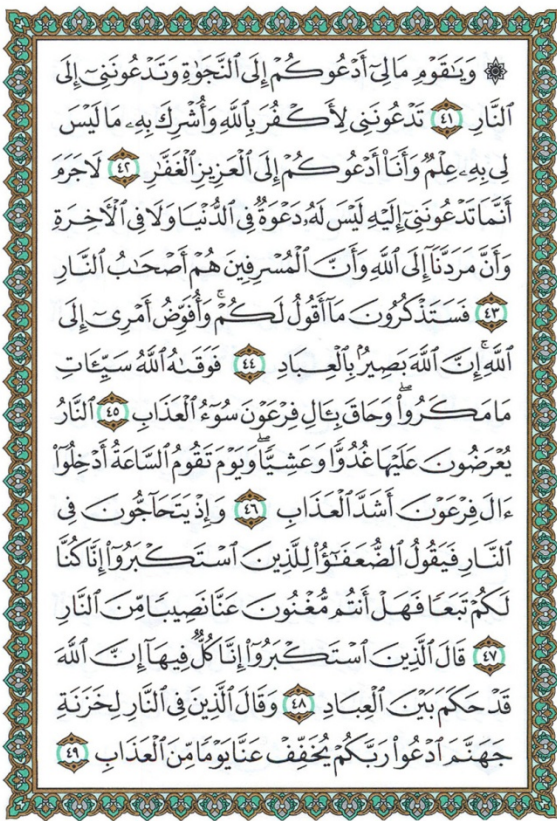 ۞ وَيَٰقَوْمِ مَا لِيٓ أَدْعُوكُمْ إِلَى ٱلنَّجَوٰةِ وَتَدْعُونَنِيٓ إِلَى
ٱلنَّارِ ٤١ تَدْعُونَنِي لِأَكْفُرَ بِٱللَّهِ وَأُشْرِكَ بِهِۦ مَا لَيْسَ
لِي بِهِۦ عِلْمٌ وَأَنَا۠ أَدْعُوكُمْ إِلَى ٱلْعَزِيزِ ٱلْغَفَّٰرِ ٤٢ لَا جَرَمَ
أَنَّمَا تَدْعُونَنِيٓ إِلَيْهِ لَيْسَ لَهُۥ دَعْوَةٌ فِي ٱلدُّنْيَا وَلَا فِي ٱلْأٓخِرَةِ
وَأَنَّ مَرَدَّنَآ إِلَى ٱللَّهِ وَأَنَّ ٱلْمُسْرِفِينَ هُمْ أَصْحَٰبُ ٱلنَّارِ
٤٣ فَسَتَذْكُرُونَ مَآ أَقُولُ لَكُمْ ۚ وَأُفَوِّضُ أَمْرِيٓ إِلَى
ٱللَّهِ ۚ إِنَّ ٱللَّهَ بَصِيرٌۢ بِٱلْعِبَادِ ٤٤ فَوَقَىٰهُ ٱللَّهُ سَيِّـَٔاتِ
مَا مَكَرُوا۟ ۖ وَحَاقَ بِـَٔالِ فِرْعَوْنَ سُوٓءُ ٱلْعَذَابِ ٤٥ ٱلنَّارُ
يُعْرَضُونَ عَلَيْهَا غُدُوًّا وَعَشِيًّا ۖ وَيَوْمَ تَقُومُ ٱلسَّاعَةُ أَدْخِلُوٓا۟
ءَالَ فِرْعَوْنَ أَشَدَّ ٱلْعَذَابِ ٤٦ وَإِذْ يَتَحَآجُّونَ فِي
ٱلنَّارِ فَيَقُولُ ٱلضُّعَفَٰٓؤُا۟ لِلَّذِينَ ٱسْتَكْبَرُوٓا۟ إِنَّا كُنَّا
لَكُمْ تَبَعًا فَهَلْ أَنتُم مُّغْنُونَ عَنَّا نَصِيبًا مِّنَ ٱلنَّارِ
٤٧ قَالَ ٱلَّذِينَ ٱسْتَكْبَرُوٓا۟ إِنَّا كُلٌّ فِيهَآ إِنَّ ٱللَّهَ
قَدْ حَكَمَ بَيْنَ ٱلْعِبَادِ ٤٨ وَقَالَ ٱلَّذِينَ فِي ٱلنَّارِ لِخَزَنَةِ
جَهَنَّمَ ٱدْعُوا۟ رَبَّكُمْ يُخَفِّفْ عَنَّا يَوْمًا مِّنَ ٱلْعَذَابِ ٤٩